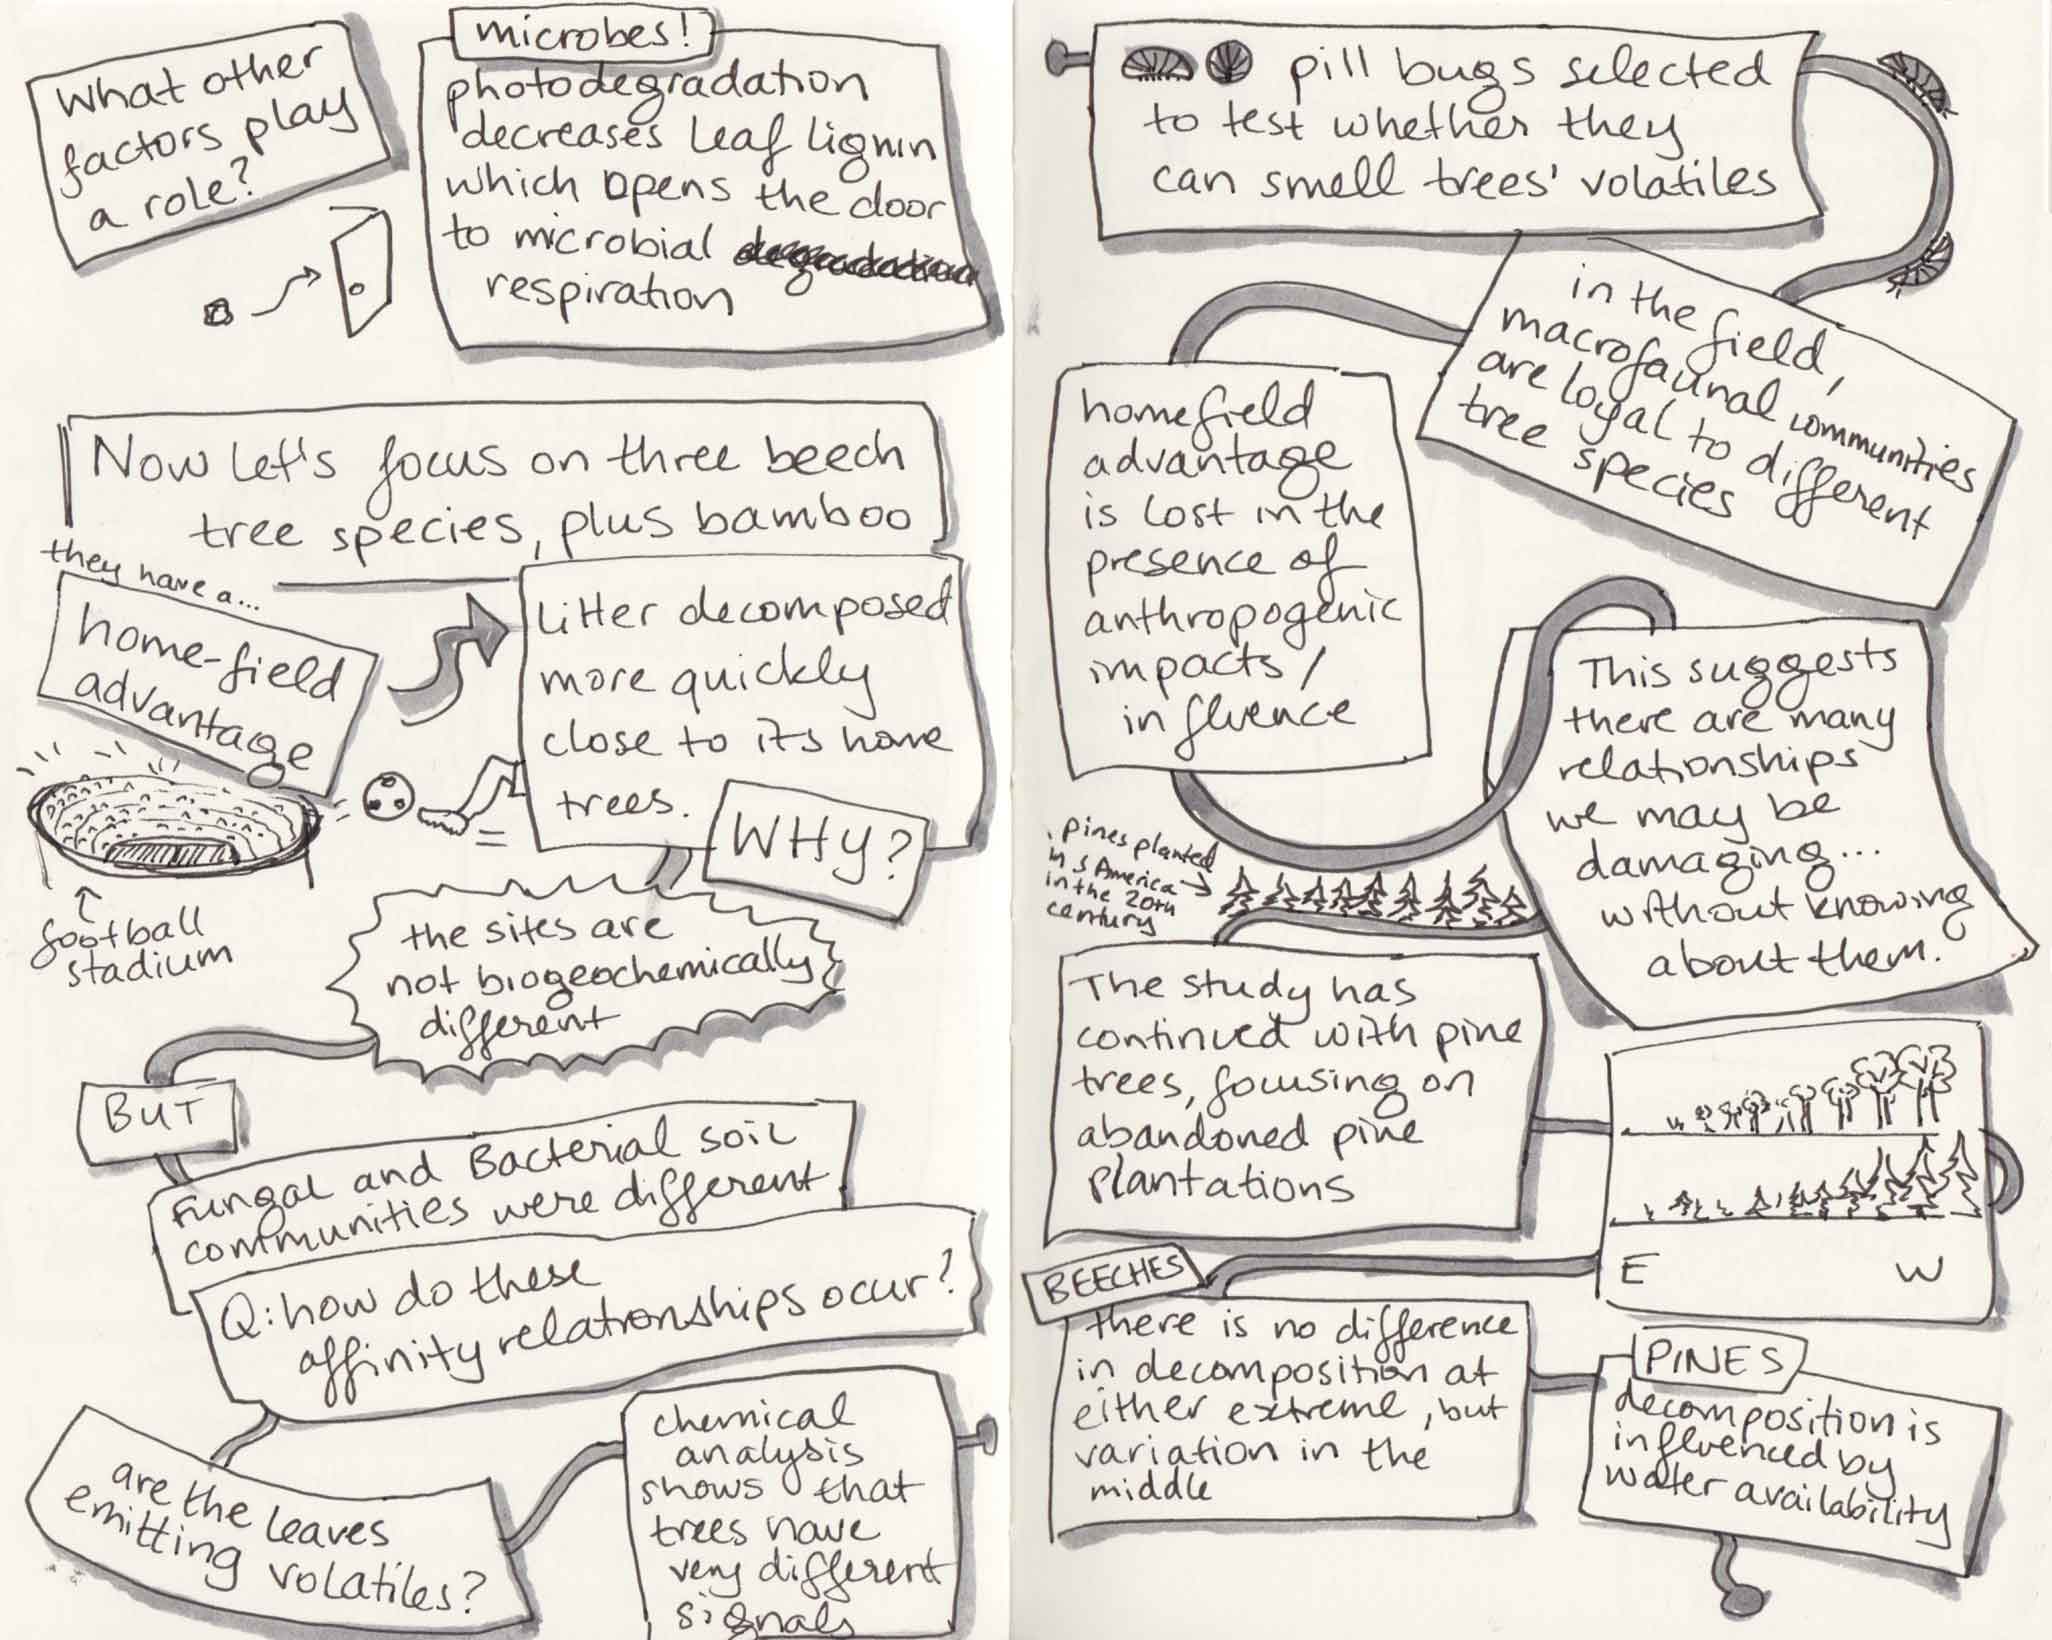 what other
factors play
a role?
microbes!
photodegradation
decreases leaf lignin
which opens the door
to microbial degradation
respiration
Now let's focus on three beech
tree species, plus bamboo
they have a...
home-field
advantage
litter decomposed
more quickly
close to its home
trees.
WHY?
football
stadium
the sites are
not biogeochemically
different
BUT
Fungal and Bacterial soil
communities were different
Q: how do these
affinity relationships occur?
are the leaves
emitting volatiles?
chemical
analysis
shows that
trees have
very different
signals
pill bugs selected
to test whether they
can smell trees' volatiles
in the field,
macrofaunal communities
are loyal to different
tree species
homefield
advantage
is lost in the
presence of
anthropogenic
impacts/
influence
This suggests
there are many
relationships
we may be
damaging...
without knowing
about them.
pines planted
in S America
in the 20th
century
The study has
continued with pine
trees, focusing on
abandoned pine
plantations
E W
BEECHES
there is no difference
in decomposition at
either extreme, but
variation in the
middle
PINES
decomposition is
influenced by
water availability